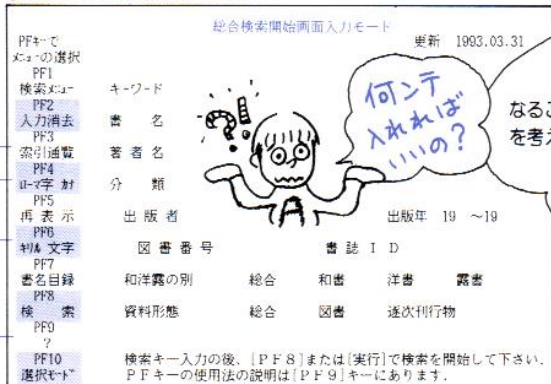 総合検索開始画面入力モード
更新 1993.03.31
PFキーで
メニューの選択
PF1
検索メニュー
PF2
入力消去
PF3
索引通覧
PF4
ローマ字 カナ
PF5
再 表 示
PF6
キリル 文字
PF7
書名目録
PF8
検 索
PF9
?
PF10
選択モード
キーワード
書 名
著 者 名
分 類
出 版 者 出版年 19 ~19
図 書 番 号 書 誌 I D
和洋露の別 総合 和書 洋書 露書
資料形態 総合 図書 逐次刊行物
検索キー入力の後、[PF8]または[実行]で検索を開始して下さい.
PFキーの使用法の説明は[PF9]キーにあります.
?!
何ンテ
入れれば
いいの?
A
なるこ
を考え